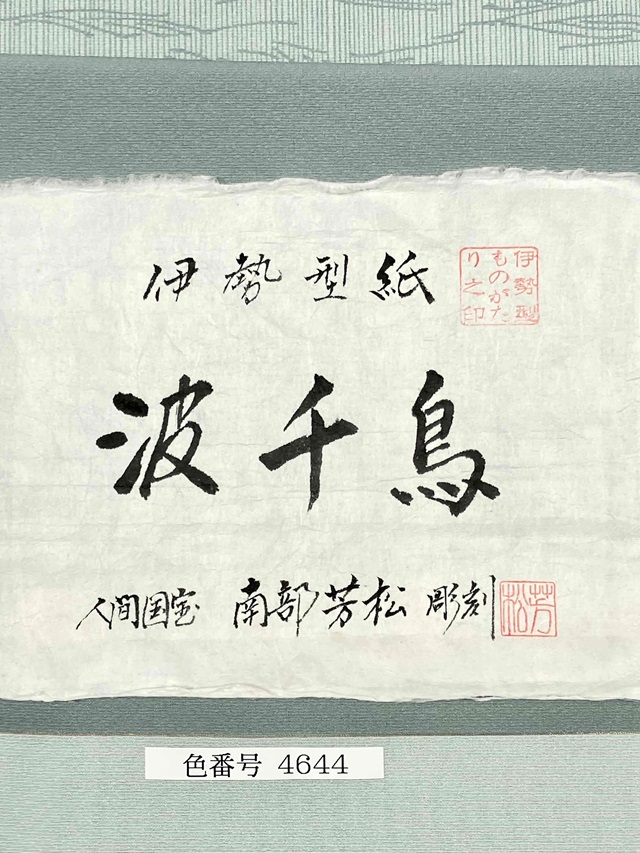 伊勢型紙
伊勢型
ものがた
り之印
波千鳥
人間国宝 南部芳松 彫刻
芳松
色番号 4644